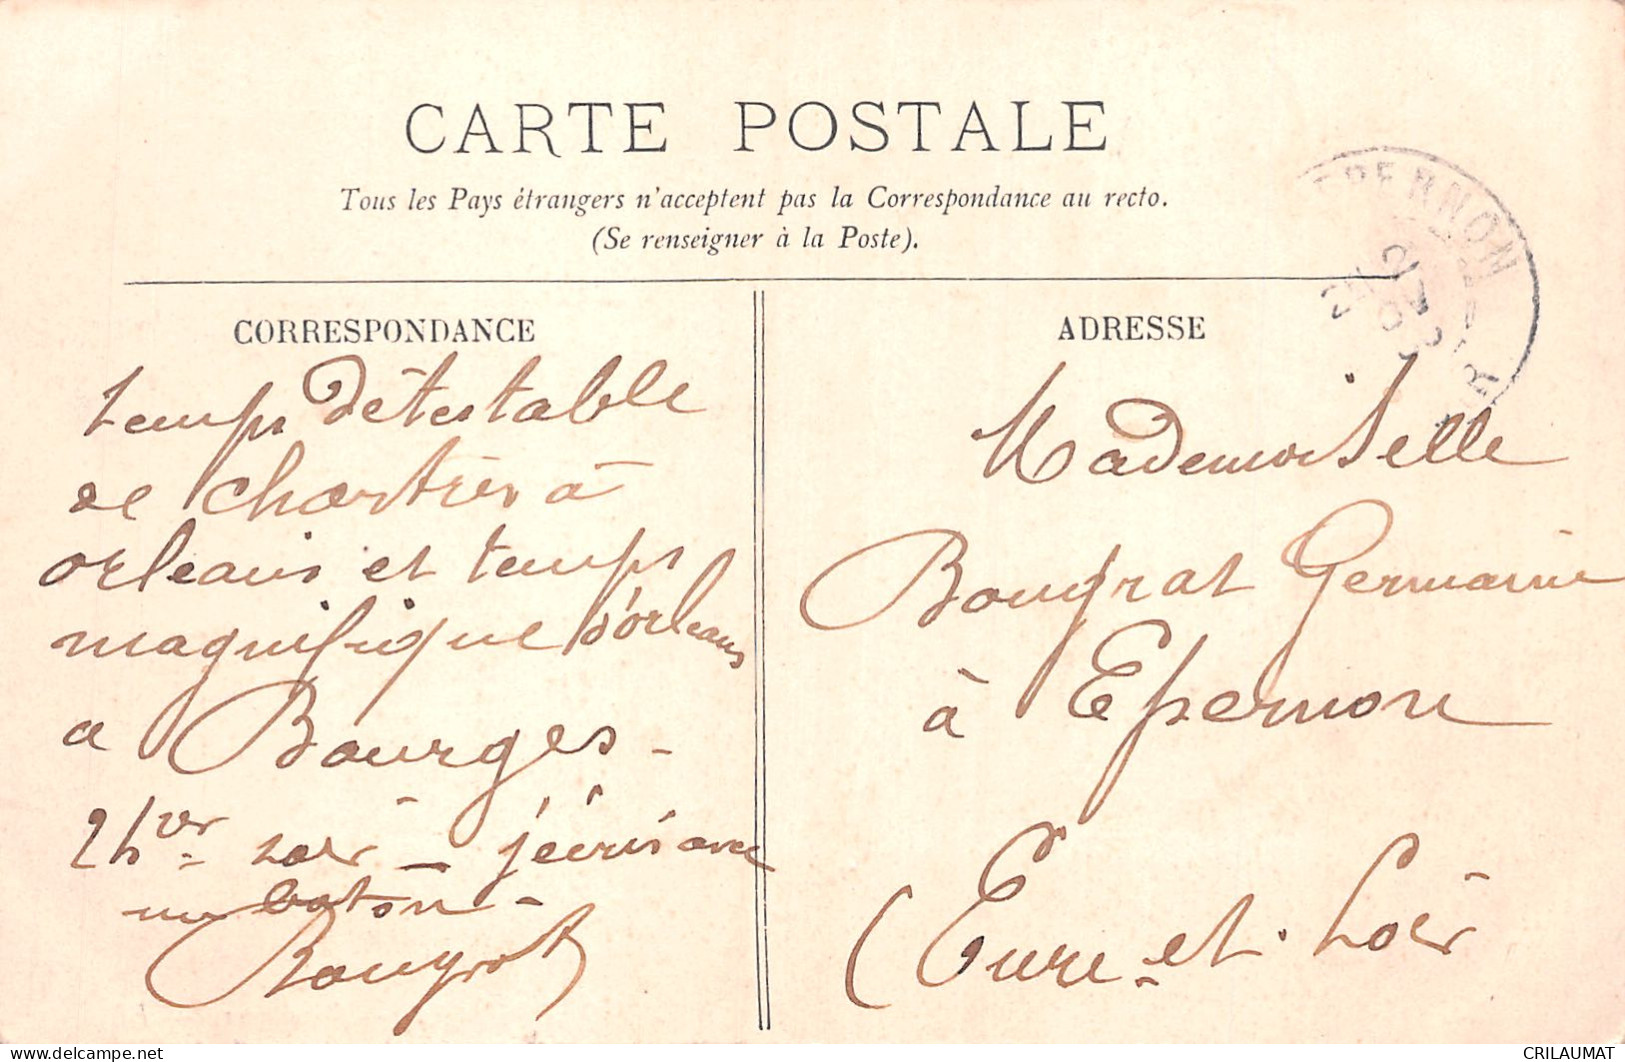 CARTE POSTALE
Tous les Pays étrangers n'acceptent pas la Correspondance au recto.
(Se renseigner à la Poste).
EPERNON
CORRESPONDANCE
temps détestable
de Chartres à
orleans et temps
magnifique d'orleans
a Bourges -
2 hres soir - j'écris avec
un baton -
Bougrat
ADRESSE
Mademoiselle
Bougrat Germaine
à Epernon
(Eure-et-Loir
CRILAUMAT